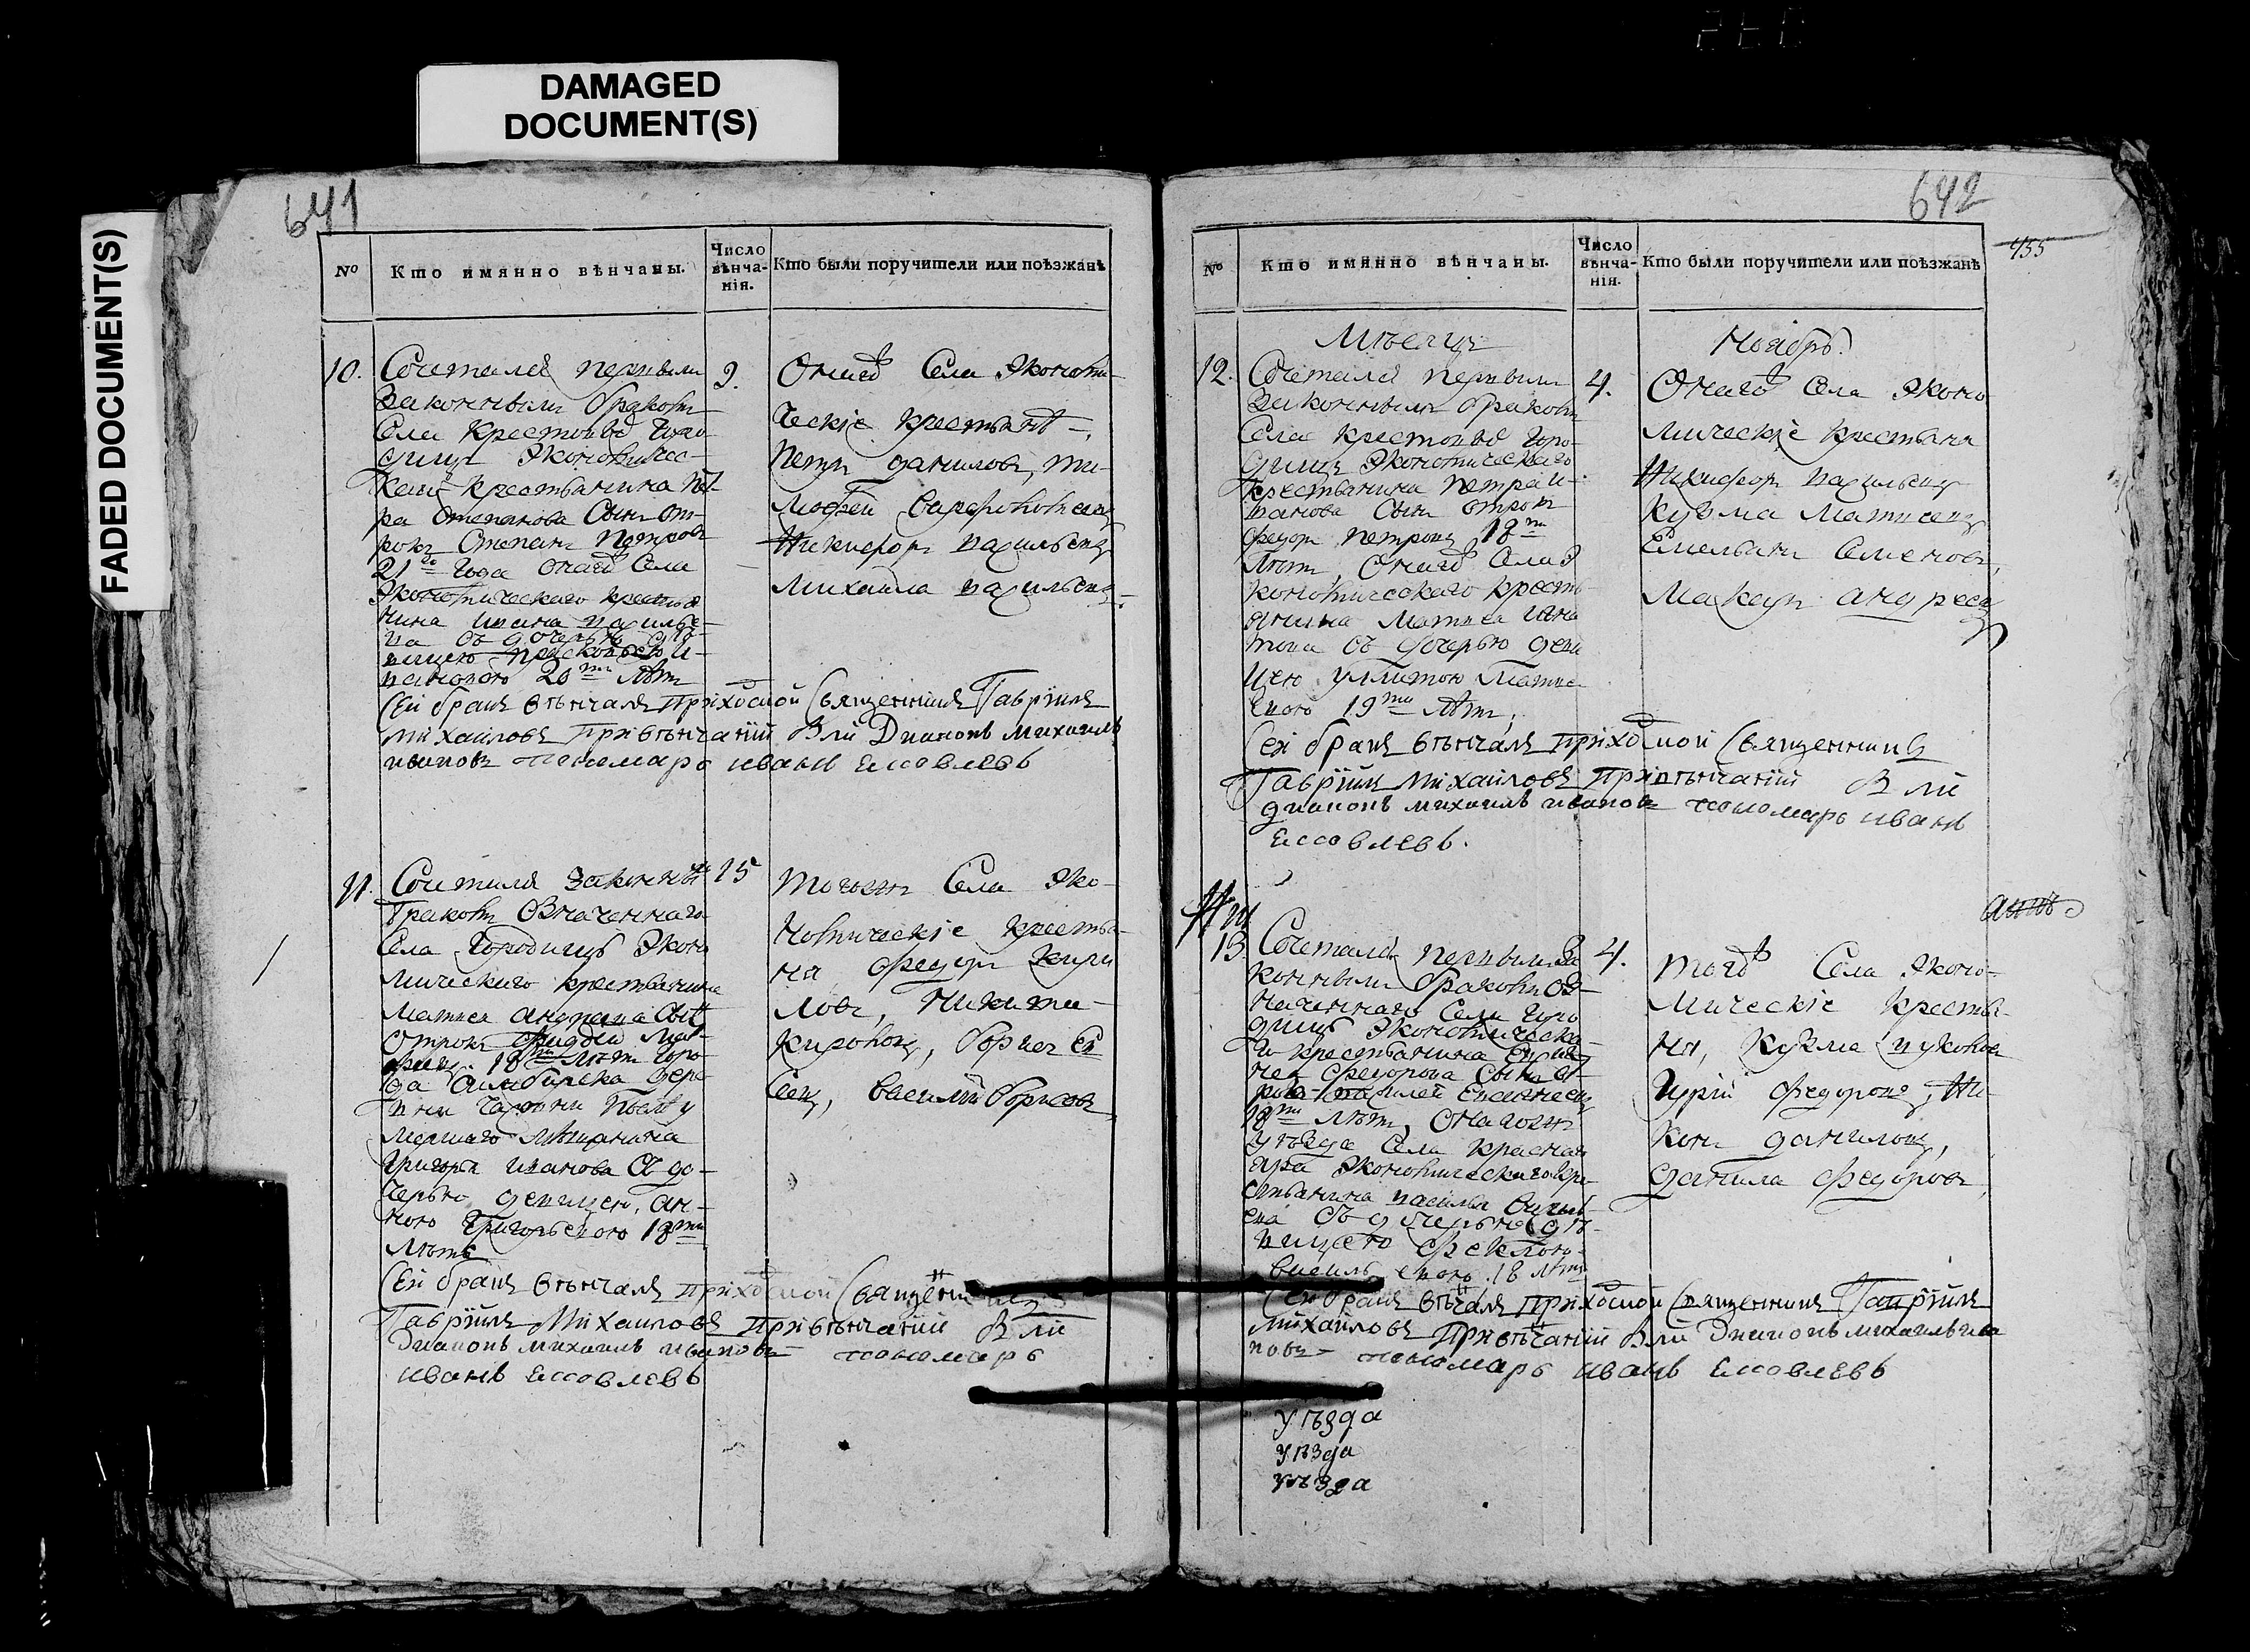 DAMAGED
DOCUMENT(S)
FADED DOCUMENT(S)
641
№
Кто имянно вѣнчаны.
Число
вѣнча-
нія.
Кто были поручители или поѣзжанѣ
10.
Сочетался первымъ
законнымъ бракомъ
Села Крестовыхъ Горо-
дищъ Экономичес-
каго крестьянина Пет-
ра Степанова Сынъ от-
рокъ Степанъ Петровъ
21го года онагожъ Села
Экономическаго крестья
нина Ивана Василье-
ва съ дочерью дѣ-
вицею Прасковьею И-
вановою 20ти лѣтъ
9.
Онагожъ Села Экономи-
ческіе крестьянѣ
Петръ Даниловъ, Ти-
мофей
Никифоръ Васильевъ
Михайла Васильевъ
Сей бракъ вѣнчалъ приходской Священникъ Гавріилъ
Михайловъ При вѣнчаніи были Диаконъ Михаилъ
Ивановъ пономарь Иванъ Ѥковлевъ
11.
Сочетался законнымъ
бракомъ Означеннаго
Села Городищъ Эконо
мическаго крестьянина
Матвея Андреева Сынъ
отрокъ Мат-
феевъ 18ти лѣтъ Горо-
да Симбирска
умершаго мѣщанина
Григорья Иванова съ до-
черью девицею, Ан-
ною Григорьевою 18ти
лѣтъ
15
Тогожъ Села Эко-
номическіе крестья-
на Федоръ Кири
ловъ, Никита
Борисъ Ев
сеевъ, Василій Борисовъ
Сей бракъ вѣнчалъ приходской Священникъ
Гавріилъ Михайловъ При вѣнчаніи были
Диаконъ Михаилъ Ивановъ пономарь
Иванъ Ѥковлевъ
642
455
№
Кто имянно вѣнчаны.
Число
вѣнча-
нія.
Кто были поручители или поѣзжанѣ
Мѣсяцъ
Ноябрь.
12.
Сочетался первымъ
законнымъ бракомъ
Села Крестовыхъ Горо-
дищъ Экономическаго
крестьянина Петра И-
ванова Сынъ отрокъ
Федоръ Петровъ 18ти
лѣтъ, Онагожъ Села Э
кономическаго кресть
янина Матвея Игна
това съ дочерью деви
цею Улитою Матве
евою 19ти лѣтъ,
4.
Онагожъ Села Эконо
мическіе крестьяня
Никифоръ Васильевъ
Кузма Матвеевъ
Емельянъ Семеновъ,
Максимъ Андреевъ
Сей бракъ вѣнчалъ приходской Священникъ
Гавріилъ Михайловъ При вѣнчаніи были
Диаконъ Михаилъ Ивановъ пономарь Иванъ
Ѥковлевъ.
13.
Сочетался первымъ за
коннымъ бракомъ Оз-
наченнаго Села Горо
дищъ Экономическа-
го крестьянина
Федорова Сынъ от-
рокъ
18ти лѣтъ, Онагожъ
уѣзда Села Краснаго
Яра Экономическаго кре
стьянина Василья
съ дочерью дѣ-
вицею Феклою
Васильевою 18 лѣтъ
4.
Тогожъ Села Эконо-
мическіе крестья-
ня, Кузма
Гурій Федоровъ, Ни-
конъ Даниловъ,
Данила Федоровъ
Сей бракъ вѣнчалъ приходской Священникъ Гавріилъ
Михайловъ При вѣнчаніи были Диаконъ Михаилъ Ива
новъ пономарь Иванъ Ѥковлевъ
уѣзда
уѣзда
уѣзда